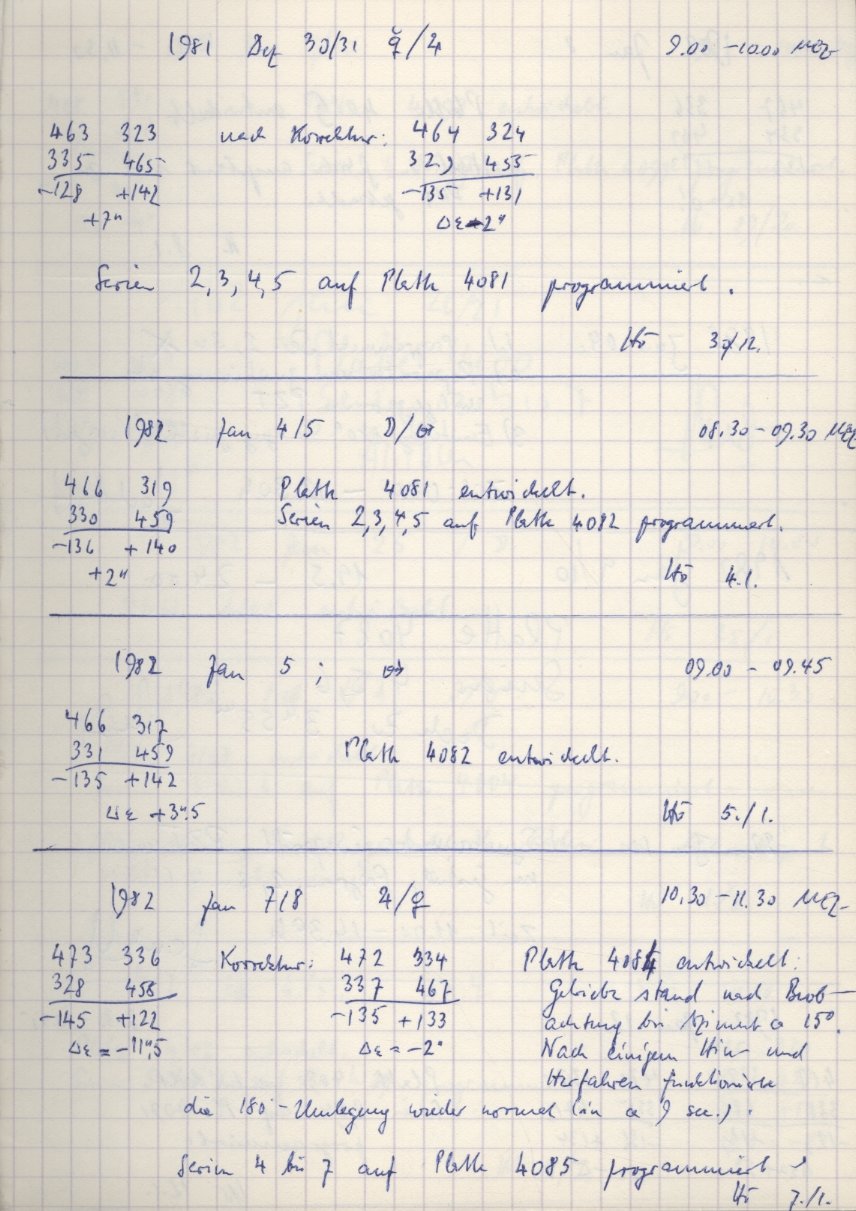 1981 Dez 30/31 ☿/♃ 9.00 – 10.00 MEZ
463 323 nach Korrektur: 464 324
335 465 329 455
-128 +142 -135 +131
+7" Δε -2"
Serien 2, 3, 4, 5 auf Platte 4081 programmiert.
Hö 30/12.
1982 Jan 4/5 D/♂ 08.30 – 09.30 MEZ
466 319 Platte 4081 entwickelt.
330 459 Serien 2,3,4,5 auf Platte 4082 programmiert.
-136 +140
+2" Hö 4.1.
1982 Jan 5 ; ♂ 09.00 – 09.45
466 317
331 459 Platte 4082 entwickelt.
-135 +142
Δε +3".5 Hö 5./1.
1982 Jan 7/8 ♃/♀ 10.30 – 11.30 MEZ
473 336 Korrektur: 472 334 Platte 4084 entwickelt.
328 458 337 467 Getriebe stand nach Beob-
-145 +122 -135 +133 achtung bei Azimut ca 15°.
Δε = -11",5 Δε = -2" Nach einigem Hin- und
Herfahren funktionierte
die 180°-Umlegung wieder normal (in ca 9 sec.).
Serien 4 bis 7 auf Platte 4085 programmiert.
Hö 7./1.